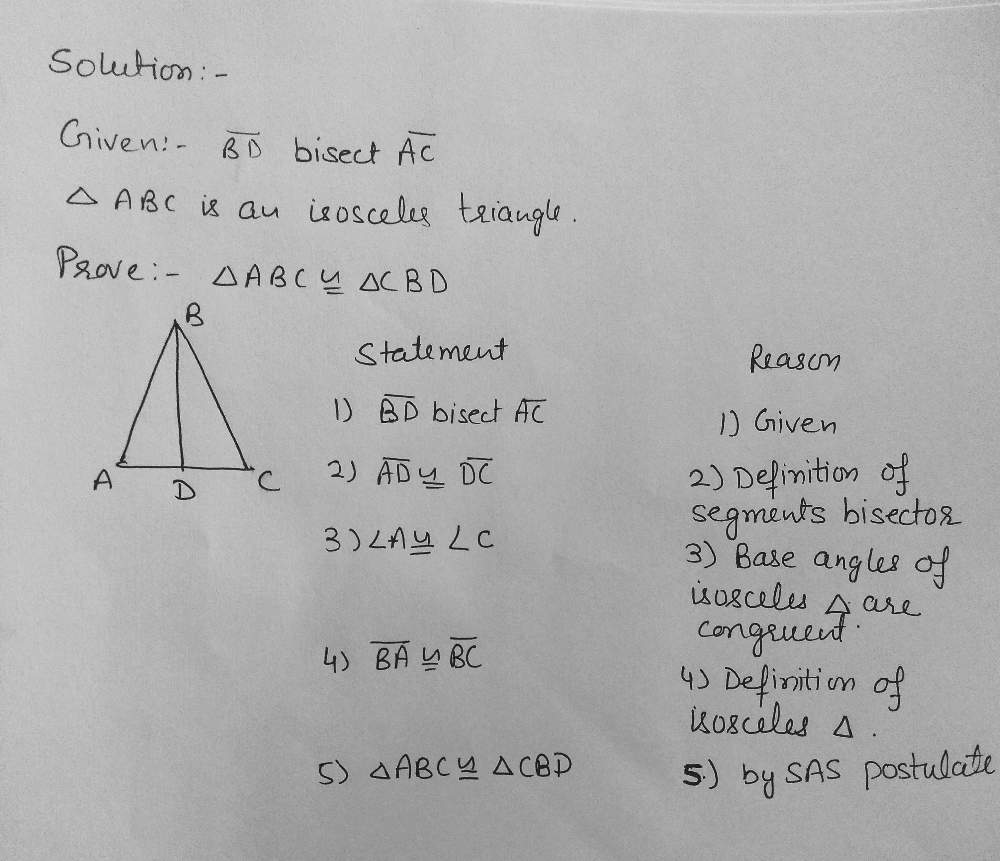 Solution:-
Given:- BD bisect AC
△ ABC is an isosceles triangle.
Prove:- △ABC ≅ △CBD
B
A
D
C
Statement
1) BD bisect AC
2) AD ≅ DC
3) ∠A ≅ ∠C
4) BA ≅ BC
5) △ABC ≅ △CBD
Reason
1) Given
2) Definition of
segments bisector
3) Base angles of
isosceles △ are
congruent.
4) Definition of
isosceles △.
5.) by SAS postulate